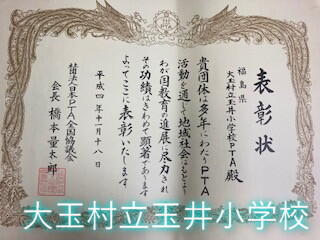 表彰状
福島県
大玉村立玉井小学校PTA殿
貴団体は多年にわたりPTA
活動を通して地域社会はもとより
わが国教育の進展に尽力され
その功績はきわめて顕著であります
よってここに表彰いたします
平成四年十一月十八日
社団法人日本PTA全国協議会
会長 橋本量太郎
大玉村立玉井小学校